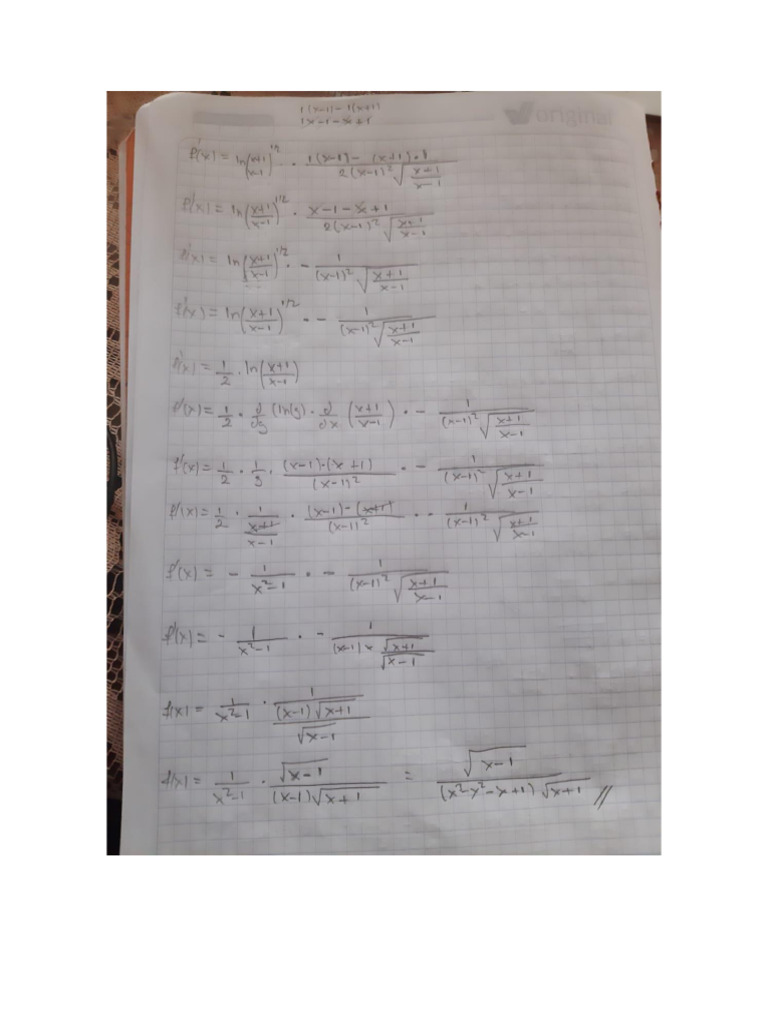 1(x-1)-1(x+1)
1x-1-x+1
original
f'(x) = ln(x+1/x-1)^1/2 · 1(x-1)-(x+1)·1 / 2(x-1)² √(x+1/x-1)
f'(x) = ln(x+1/x-1)^1/2 · x-1-x+1 / 2(x-1)² √(x+1/x-1)
f'(x) = ln(x+1/x-1)^1/2 · - 1 / (x-1)² √(x+1/x-1)
f'(x) = ln(x+1/x-1)^1/2 · - 1 / (x-1)² √(x+1/x-1)
f'(x) = 1/2 · ln(x+1/x-1)
f'(x) = 1/2 · d/dg (ln(g)) · d/dx (x+1/x-1) · - 1 / (x-1)² √(x+1/x-1)
f'(x) = 1/2 · 1/g · (x-1)·(x+1) / (x-1)² · - 1 / (x-1)² √(x+1/x-1)
f'(x) = 1/2 · 1 / (x+1/x-1) · (x-1)-(x+1) / (x-1)² · - 1 / (x-1)² √(x+1/x-1)
f'(x) = - 1 / x²-1 · - 1 / (x-1)² √(x+1/x-1)
f'(x) = - 1 / x²-1 · - 1 / (x-1) x √x+1/√x-1
f(x) = 1 / x²-1 · 1 / ((x-1)√x+1 / √x-1)
f(x) = 1 / x²-1 · √x-1 / (x-1)√x+1 = √x-1 / (x²-x²-x+1) √x+1 //